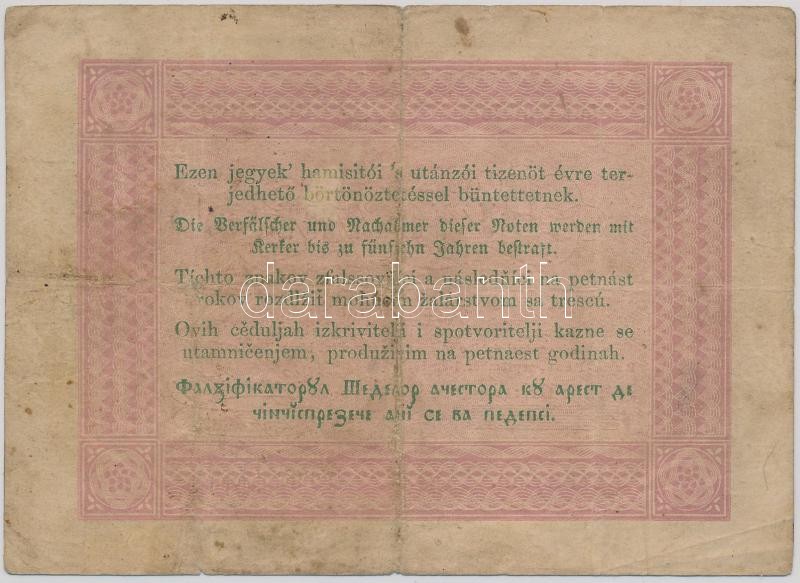 Ezen jegyek' hamisitói 's utánzói tizenöt évre ter-
jedhető börtönöztetéssel büntettetnek.
Die Verfälscher und Nachahmer dieser Noten werden mit
Kerker bis zu fünfzehn Jahren bestraft.
Tíchto znakov zfalšovníci a následňíci na petnást
rokov rozdlžit mohucím žalárstvom sa trescú.
darabanth
Ovih cĕduljah izkrivitelji i spotvoritelji kazne se
utamničenjem, produživim na petnaest godinah.
Фалꙁіфікаторꙋл Шеделор ачестора кꙋ арест де
чінчіспреꙁече ані се ва педепсі.